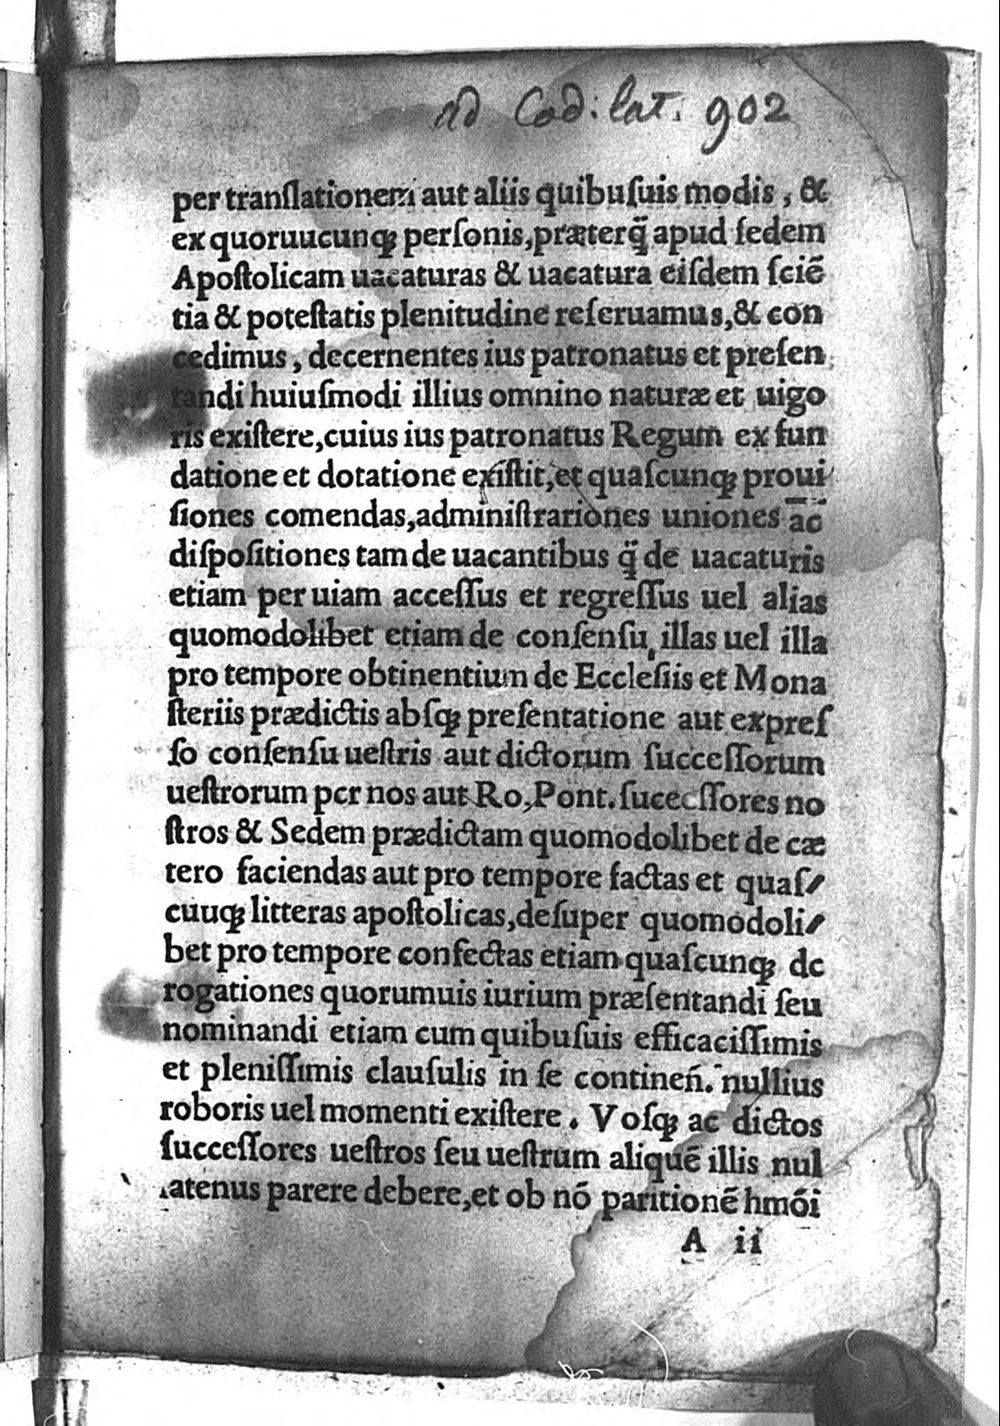 ad Cod: lat: 902
per tranſlationem aut aliis quibuſuis modis, &
ex quoruucunqꝫ perſonis, præterq̃ apud ſedem
Apoſtolicam uacaturas & uacatura eiſdem ſciē
tia & poteſtatis plenitudine reſeruamus, & con
cedimus, decernentes ius patronatus et preſen
tandi huiuſmodi illius omnino naturæ et uigo
ris exiſtere, cuius ius patronatus Regum ex fun
datione et dotatione exiſtit, et quaſcunqꝫ proui
ſiones comendas, adminiſtrariones uniones ac̄
diſpoſitiones tam de uacantibus q̃ de uacaturis
etiam per uiam acceſſus et regreſſus uel alias
quomodolibet etiam de conſenſu illas uel illa
pro tempore obtinentium de Eccleſiis et Mona
ſteriis prædictis abſqꝫ preſentatione aut expreſ
ſo conſenſu ueſtris aut dictorum ſucceſſorum
ueſtrorum per nos aut Ro, Pont. ſucceſſores no
ſtros & Sedem prædictam quomodolibet de cæ
tero faciendas aut pro tempore factas et quaſ⸗
cuuqꝫ litteras apoſtolicas, deſuper quomodoli⸗
bet pro tempore confectas etiam quaſcunqꝫ de
rogationes quorumuis iurium præſentandi ſeu
nominandi etiam cum quibuſuis efficaciſſimis
et pleniſſimis clauſulis in ſe continen̄. nullius
roboris uel momenti exiſtere. Voſqꝫ ac dictos
ſucceſſores ueſtros ſeu ueſtrum aliquē illis nul
latenus parere debere, et ob nō paritionē hmōi
A ii